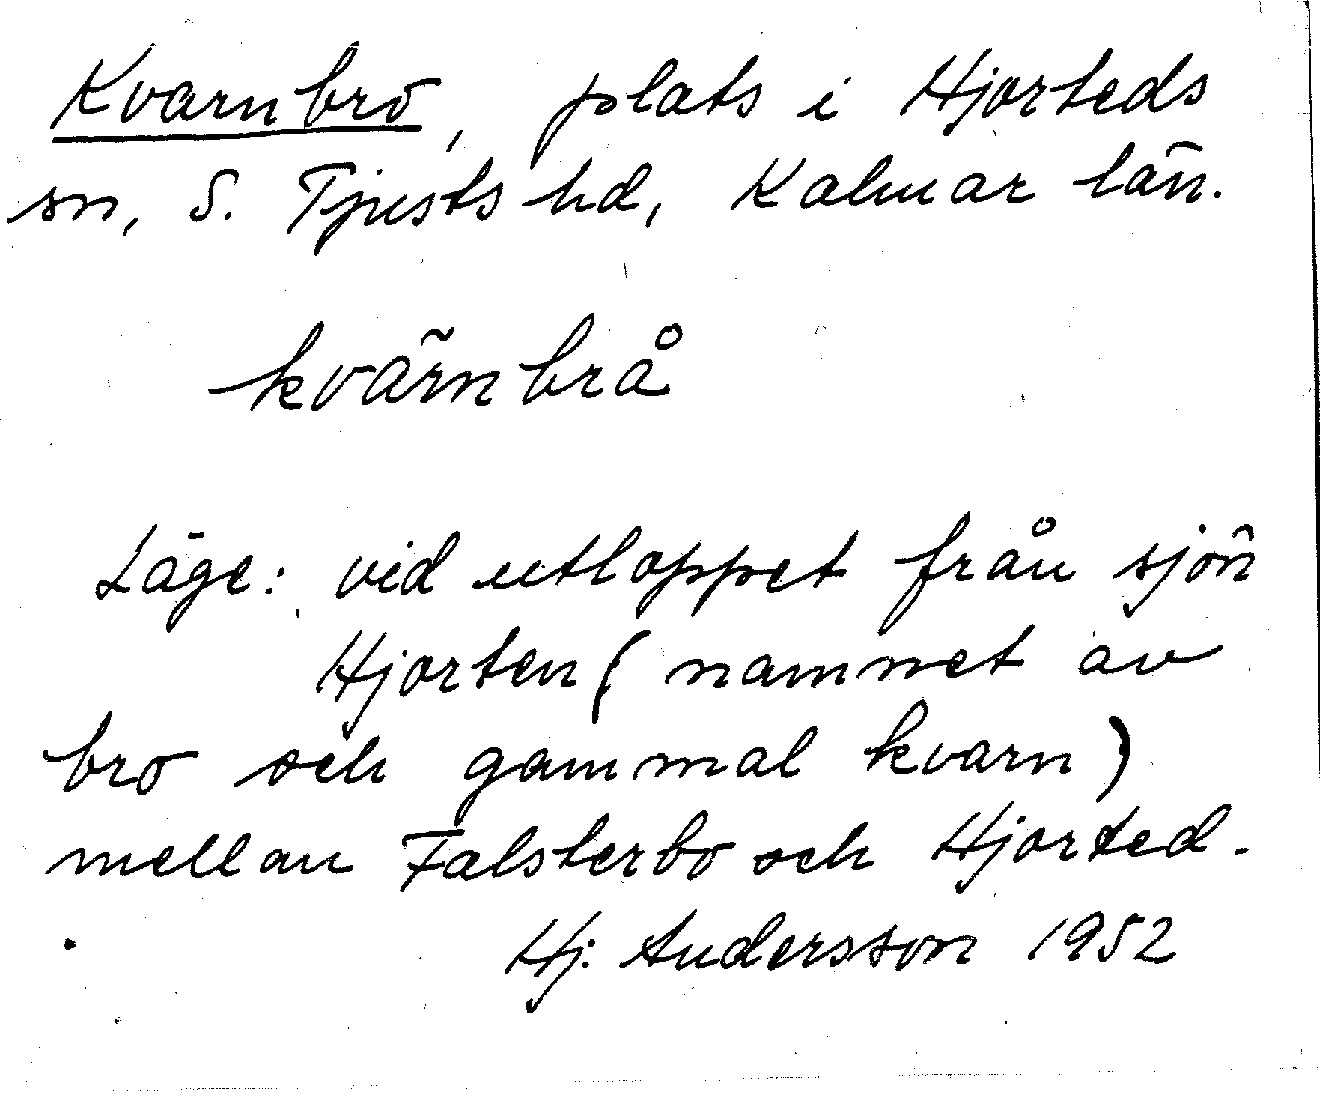 Kvarnbro, plats i Hjorteds
sn, S. Tjusts hd, Kalmar län.
kvärnbrå
Läge: vid utloppet från sjön
Hjorten (namnet av
bro och gammal kvarn)
mellan Falsterbo och Hjorted.
Hj. Andersson 1952